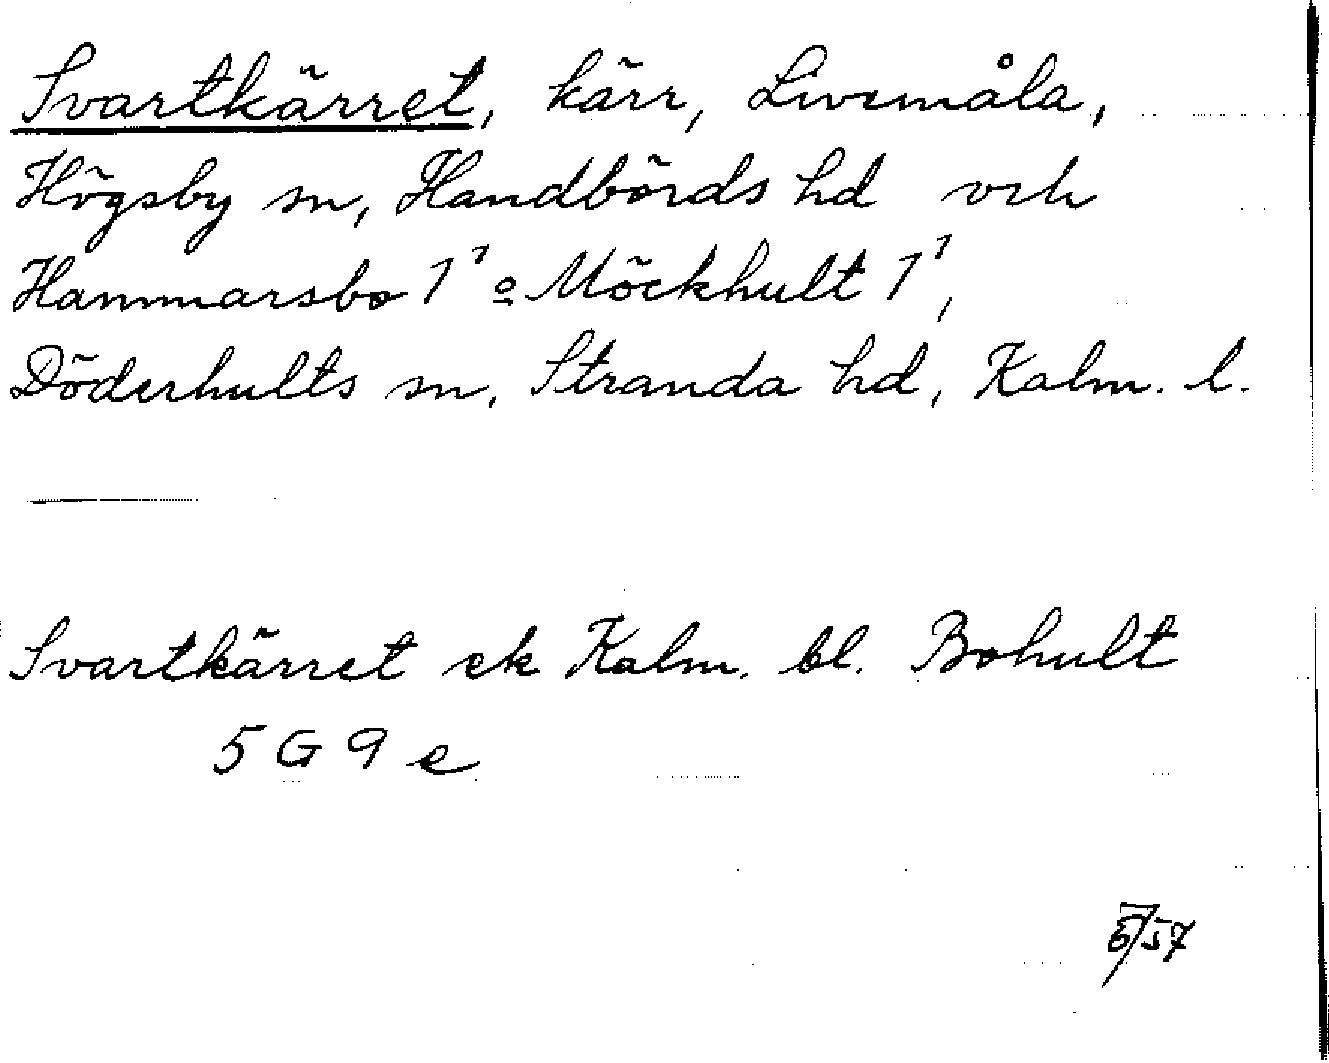 Svartkärret, kärr, Livemåla,
Högsby sn, Handbörds hd och
Hammarsbo 1¹ o Möckhult 1¹,
Döderhults sn, Stranda hd, Kalm. l.
Svartkärret ek Kalm. bl. Bohult
5 G 9 e
57